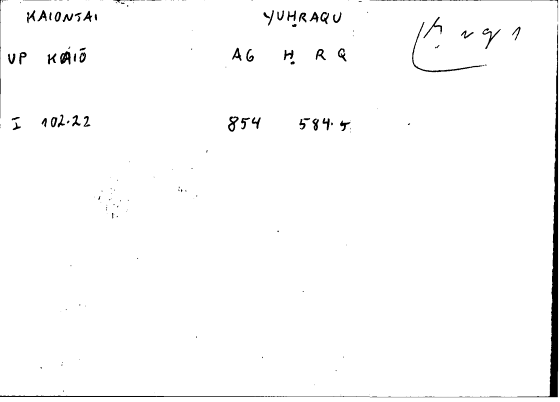 KAIONTAI YUḤRAQU
UP KAIŌ AG Ḥ R Q
I 102.22 854 584.5